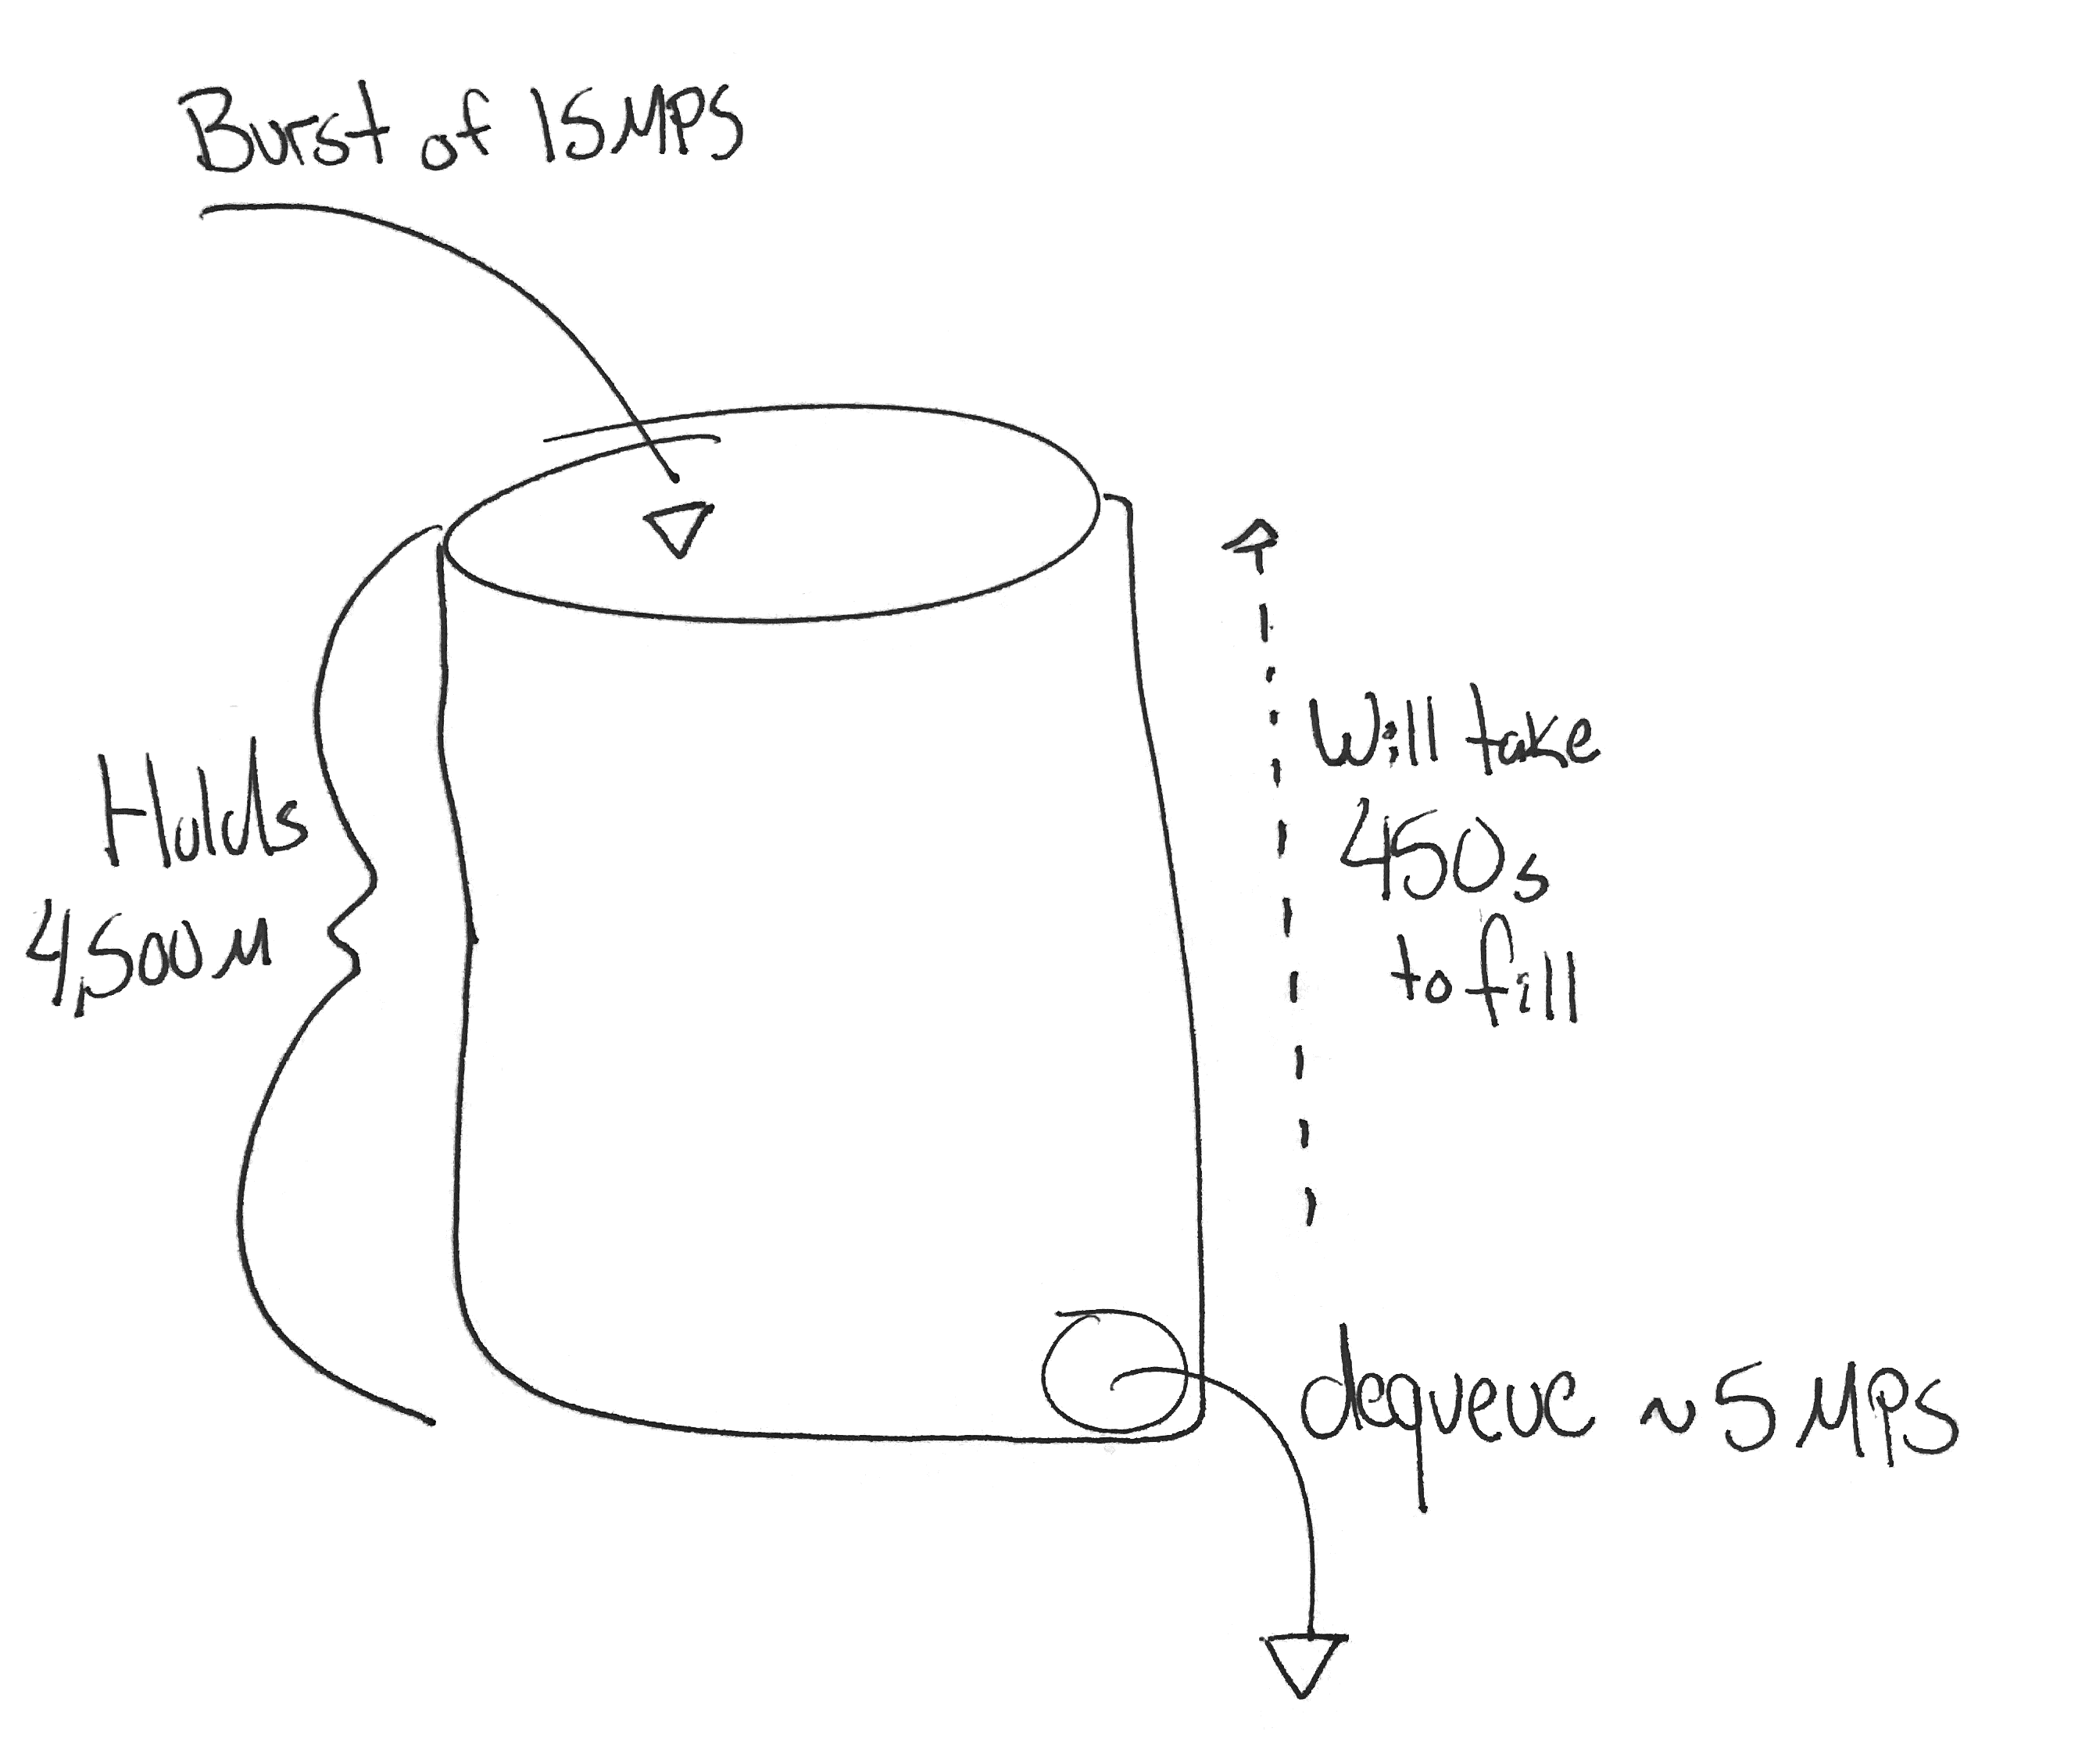 Burst of 15MPS
Holds
4,500M
Will take
450s
to fill
dequeue ~5MPS